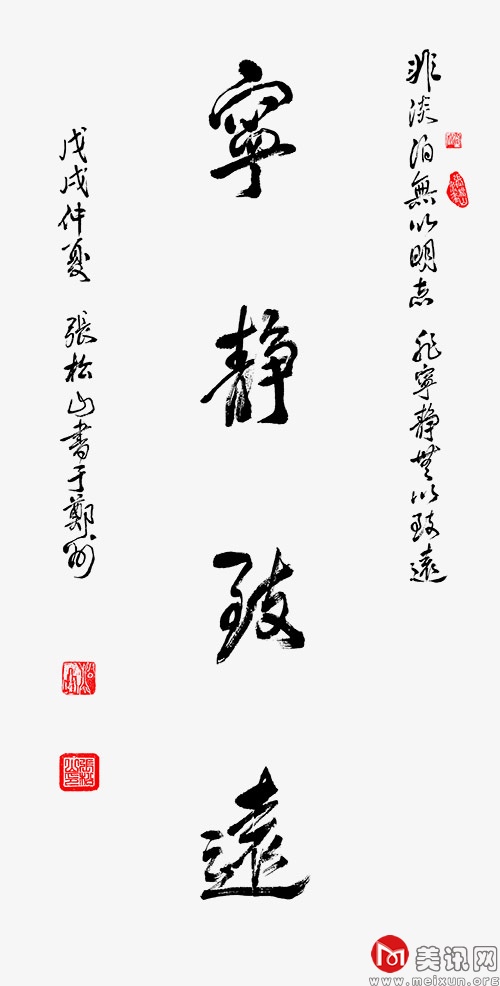 非淡泊無以明志 非寧静無以致遠
寧静致遠
戊戌仲夏 張松山書于鄭州
美讯网
www.meixun.org